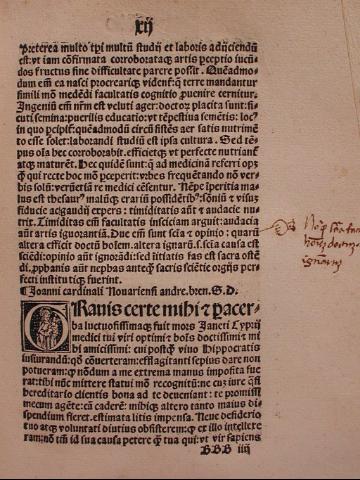 xij
Preterea multo tpi multū studij et laboris adijciendū
est: vt iam cōfirmata corroborataq; artis pceptio iucū-
dos fructus sine difficultate parere possit. Quēadmo-
dum em̄ ea nasci procreariq; videnť: q̄ terre mandantur
simili mō medēdi facultatis cognitio puenire cernitur.
Ingeniū em̄ nr̄m est veluti ager: doctor; placita sunt: si-
cuti semina: puerilis educatio: vt tēpestiua semētis: loc⁹
in quo pcipiť: quēadmodū circū fistēs aer satis nutrimē
to esse solet: laborandi studiū est ipsa cultura. Sed tē-
pus oīa hec corroborabit. efficietq; vt perfecte nutrianť
atq; maturēt. Hec quidē sunt: q̄ ad medicinā referri op̄z
q̄ qui recte hoc mō peperit: vrbes frequētando nō ver-
bis solū: veruetiā re medici cēsentur. Nēpe īperitia ma-
lus est thesaur⁹ maluq; erariū possidētib⁹: sōniū ⁊ visus
fiducie ac gaudij expers: timiditatis aūt ⁊ audacie nu-
trix. Timiditas em̄ facultatis insciciam arguit: audacia
aūt artis ignorantiā. Due em̄ sūt scīa ⁊ opinio: quarū
altera efficit doctū hoīem. altera ignarū. s. scīa causa est
sciēdi: opinio aūt ignorādi: sed litiatis fas est sacra ostē
di. pphanis aūt nephas anteq̄ sacris scīētie orgijs per-
fecti institutiq; fuerint.
¶ Joanni cardinali Nouariensi andre. bren. S. D.
GRauis certe mihi ⁊ pacer-
ba luctuosissimaq; fuit mors Jancti Cyp:ij
medici tui viri optimi ⁊ boīs doctissimi: mi
hi amicissimi: cui postq̄ viuo Hippocratis
iusiurandū: qō cōuerteram: efflagitanti sepius dare non
potueram: q̄ nōdum a me extrema manus imposita fue
rat: tibi nūc mittere statui mō recognitū: ne cuz iure q̄si
hereditario clientis bona ad te deueniant: te promissi
mecum agēte: cā caderē: mihiq; altero tanto maius di-
spendium fieret. estimata litis impensa. Neue desiderio
tuo atq; voluntati diutius obsisterem: q̄ ex illo intellexe
ram: nō tm̄ id sua causa petere q̄ tua qui: vt vir sapiens
BBB iiij
ignarus